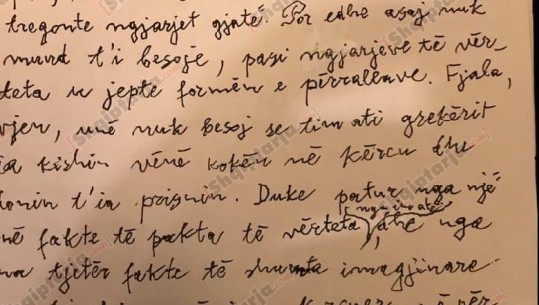 tregonte ngjarjet gjatë. Por edhe asaj nuk
mund t'i besoje, pasi ngjarjeve të vër-
teta u jepte formën e përrallave. Fjala,
vjen, unë nuk besoj se tim ati grekërit
kishin vënë kokën në kërcu dhe
donin t'ia prisnin. Duke patur nga një
në fakte të pakta të vërteta, dhe nga
tjetër fakte të shumta imagjinare